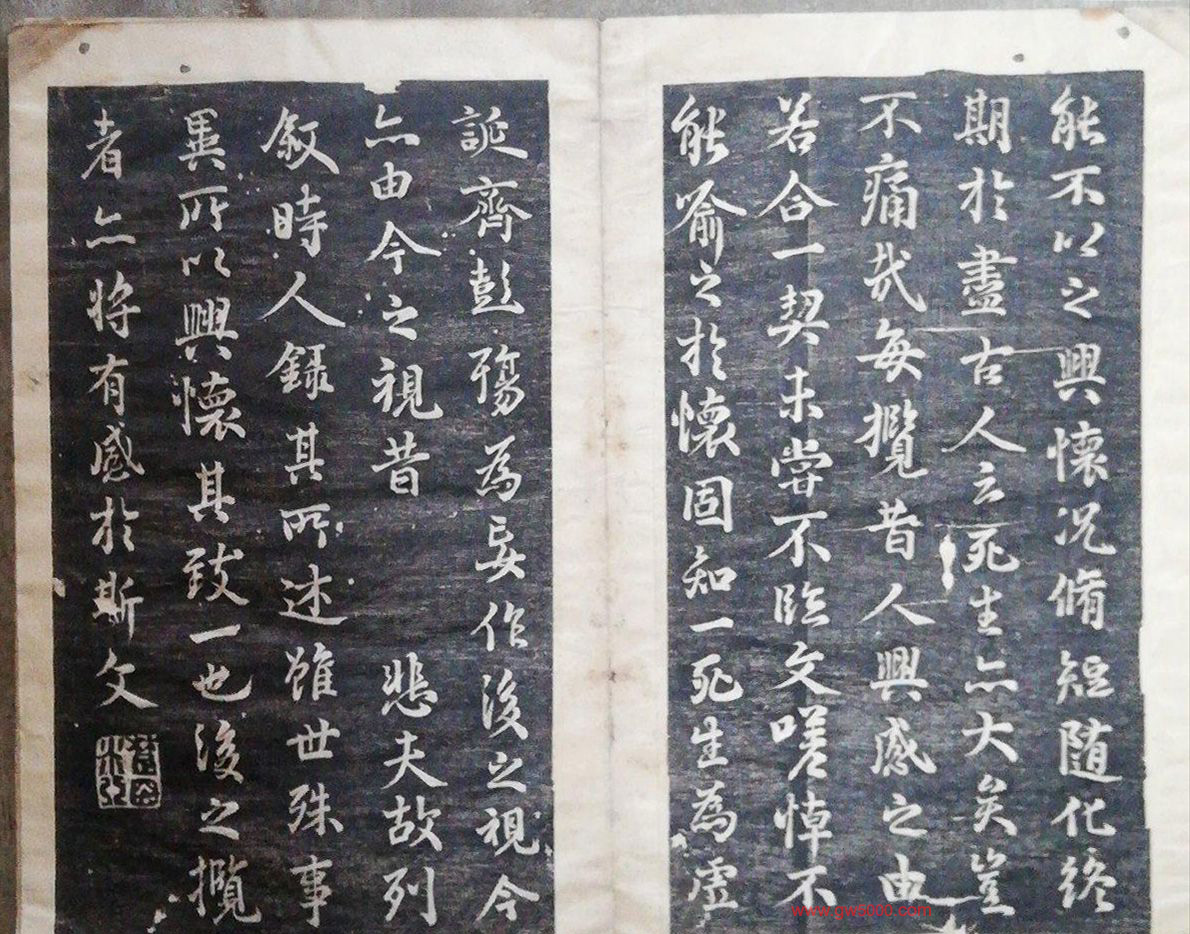 能不以之興懷況脩短随化終
期於盡古人云死生亦大矣豈
不痛哉每攬昔人興感之由
若合一契未嘗不臨文嗟悼不
能喻之於懷固知一死生為虛
誕齊彭殤為妄作後之視今
亦由今之視昔 悲夫故列
敘時人錄其所述雖世殊事
異所以興懷其致一也後之攬
者亦將有感於斯文